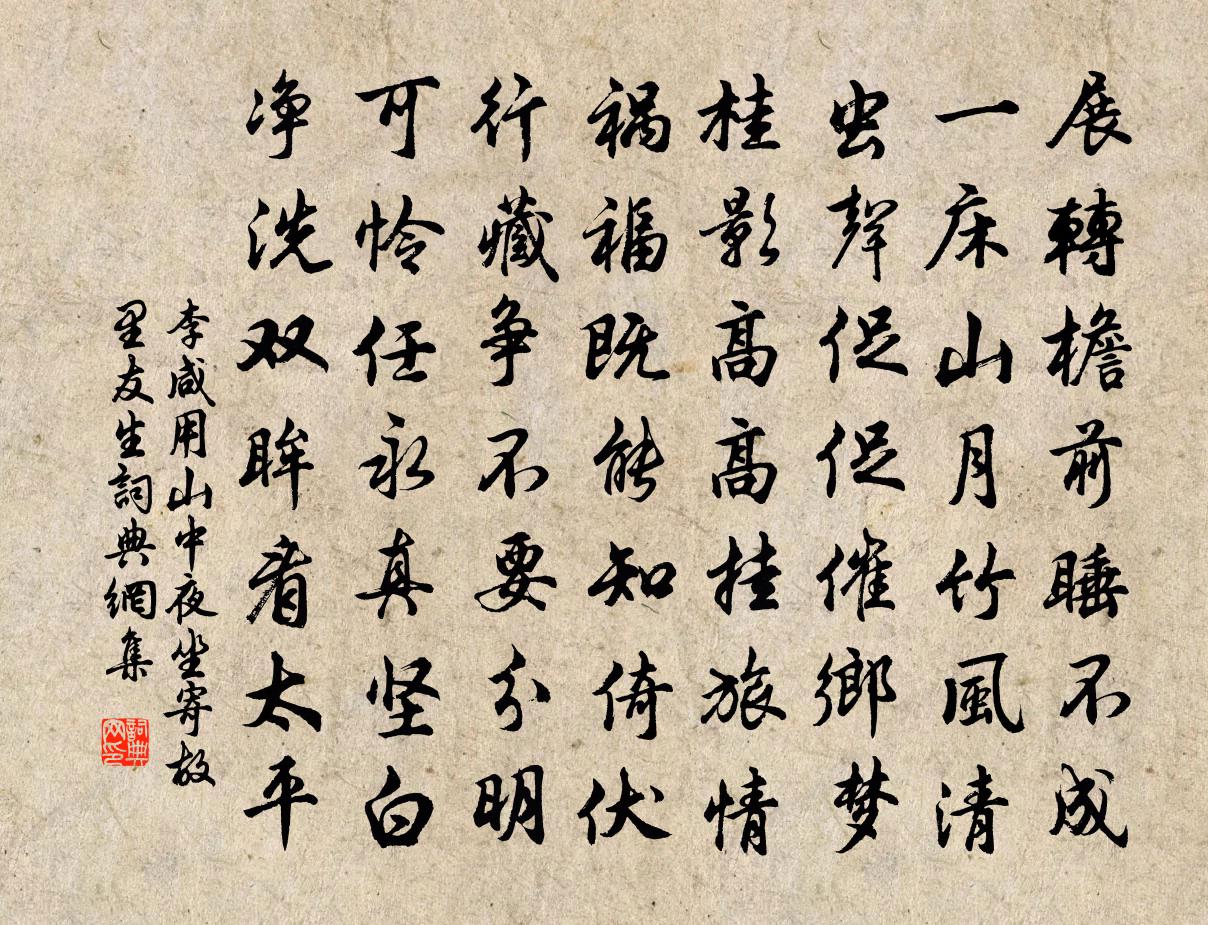 展轉檐前睡不成
一床山月竹風清
虫聲促促催鄉梦
桂影高高挂旅情
祸福既能知倚伏
行藏争不要分明
可怜任永真坚白
净洗双眸看太平
李咸用山中夜坐寄故
里友生詞典網集
詞典
网印